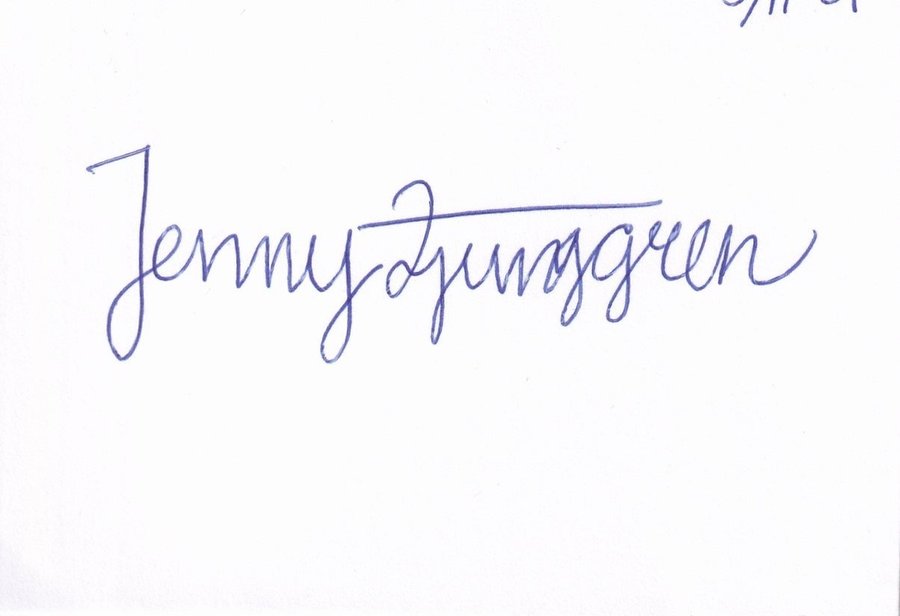 Jenny Ljunggren